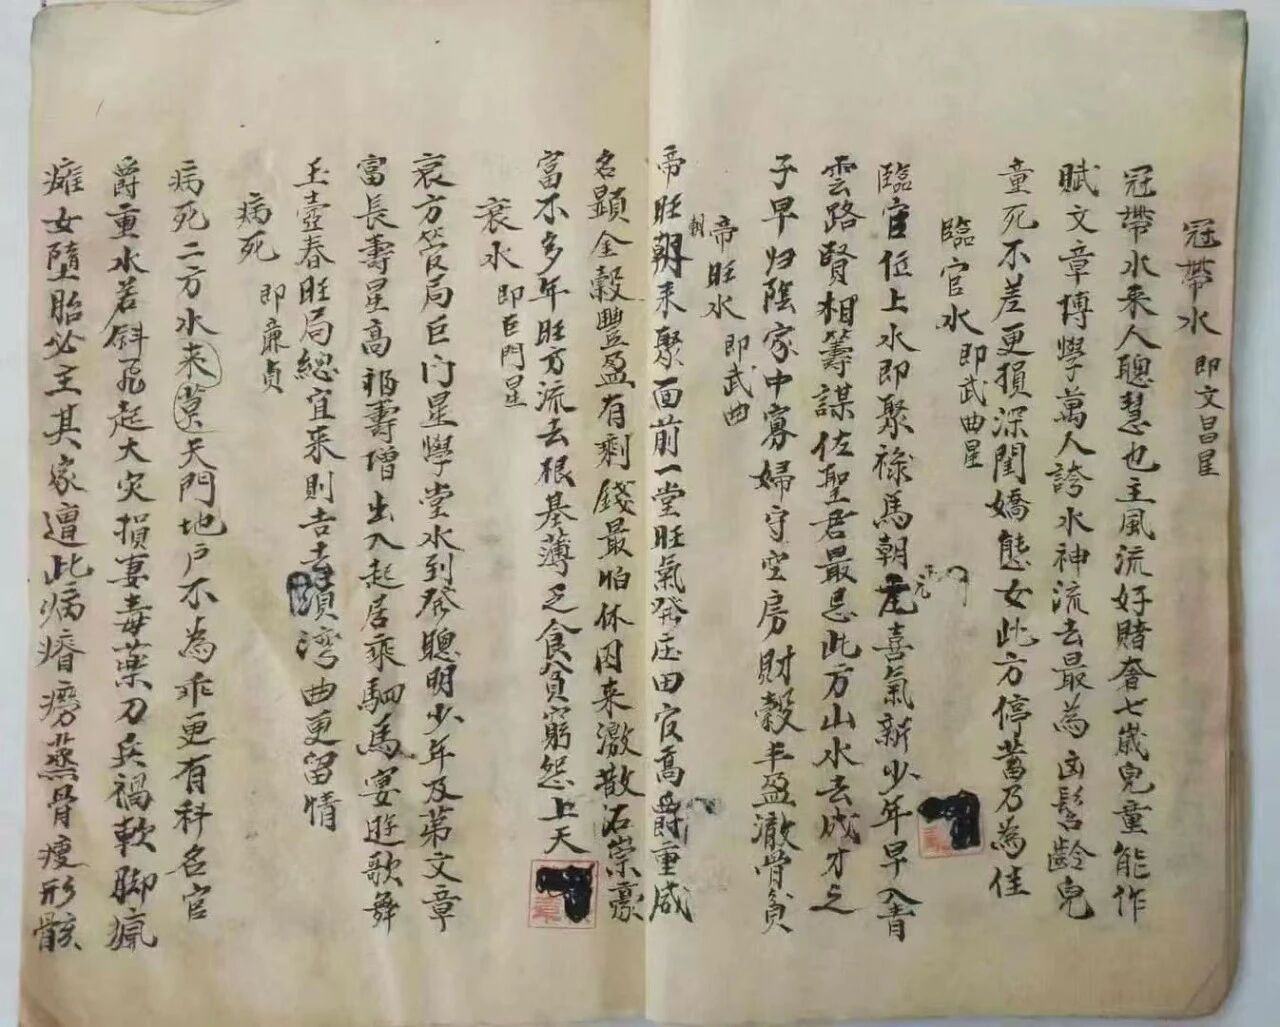 冠帶水 即文昌星
冠帶水来人聰慧也主風流好賭奢七歲兒童能作
賦文章博學萬人誇水神流去最為凶髫齡兒
童死不差更損深閨嬌態女此方停蓄乃為佳
臨官水 即武曲星
臨官位上水即聚祿馬朝元喜氣新少年早入青
雲路賢相籌謀佐聖君最忌此方山水去成才之
子早归陰家中寡婦守空房財穀半盈澈骨貧
帝旺水 即武曲
帝旺朝来聚面前一堂旺氣發庄田官高爵重咸
名顕金穀豐盈有剩錢最怕休囚来激散石崇豪
富不多年旺方流去根基薄乏食貧窮怨上天
衰水 即巨門星
衰方管局巨门星學堂水到發聰明少年及第文章
富長壽星高福壽增出入起居乘駟馬宴遊歌舞
玉壺春旺局總宜来則吉去灣曲更留情
病死 即亷貞
病死二方水来莫天門地户不為乖更有科名官
爵重水若斜飛起大灾損妻毒藥刀兵禍軟脚瘋
癱女墮胎必主其家遭此病癆蒸骨瘦形骸